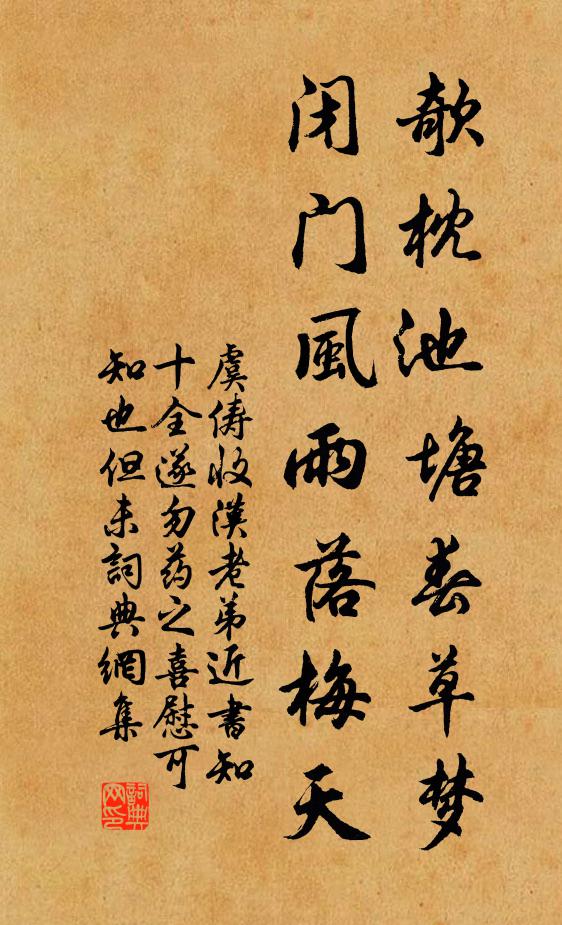 欹枕池塘春草梦
闭门風雨落梅天
虞俦收漢老弟近書知
十全遂勿药之喜慰可
知也但未詞典網集
詞典网印